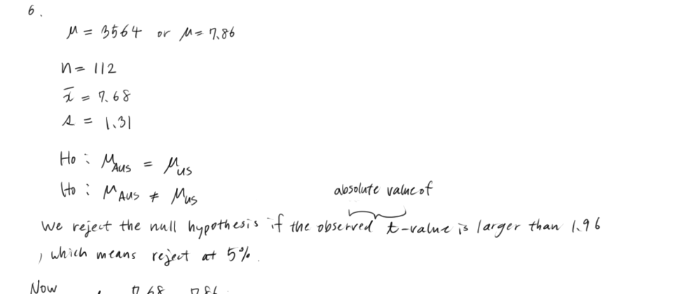 6.
μ = 3564 or μ = 7.86
n = 112
x̄ = 7.68
s = 1.31
Ho : μAus = μus
Ho : μAus ≠ μus
absolute value of
We reject the null hypothesis if the observed t-value is larger than 1.96
, which means reject at 5%.
Now